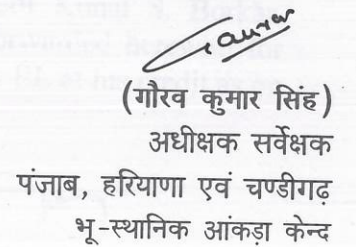 Gaurav
(गौरव कुमार सिंह)
अधीक्षक सर्वेक्षक
पंजाब, हरियाणा एवं चण्डीगढ़
भू-स्थानिक आंकड़ा केन्द